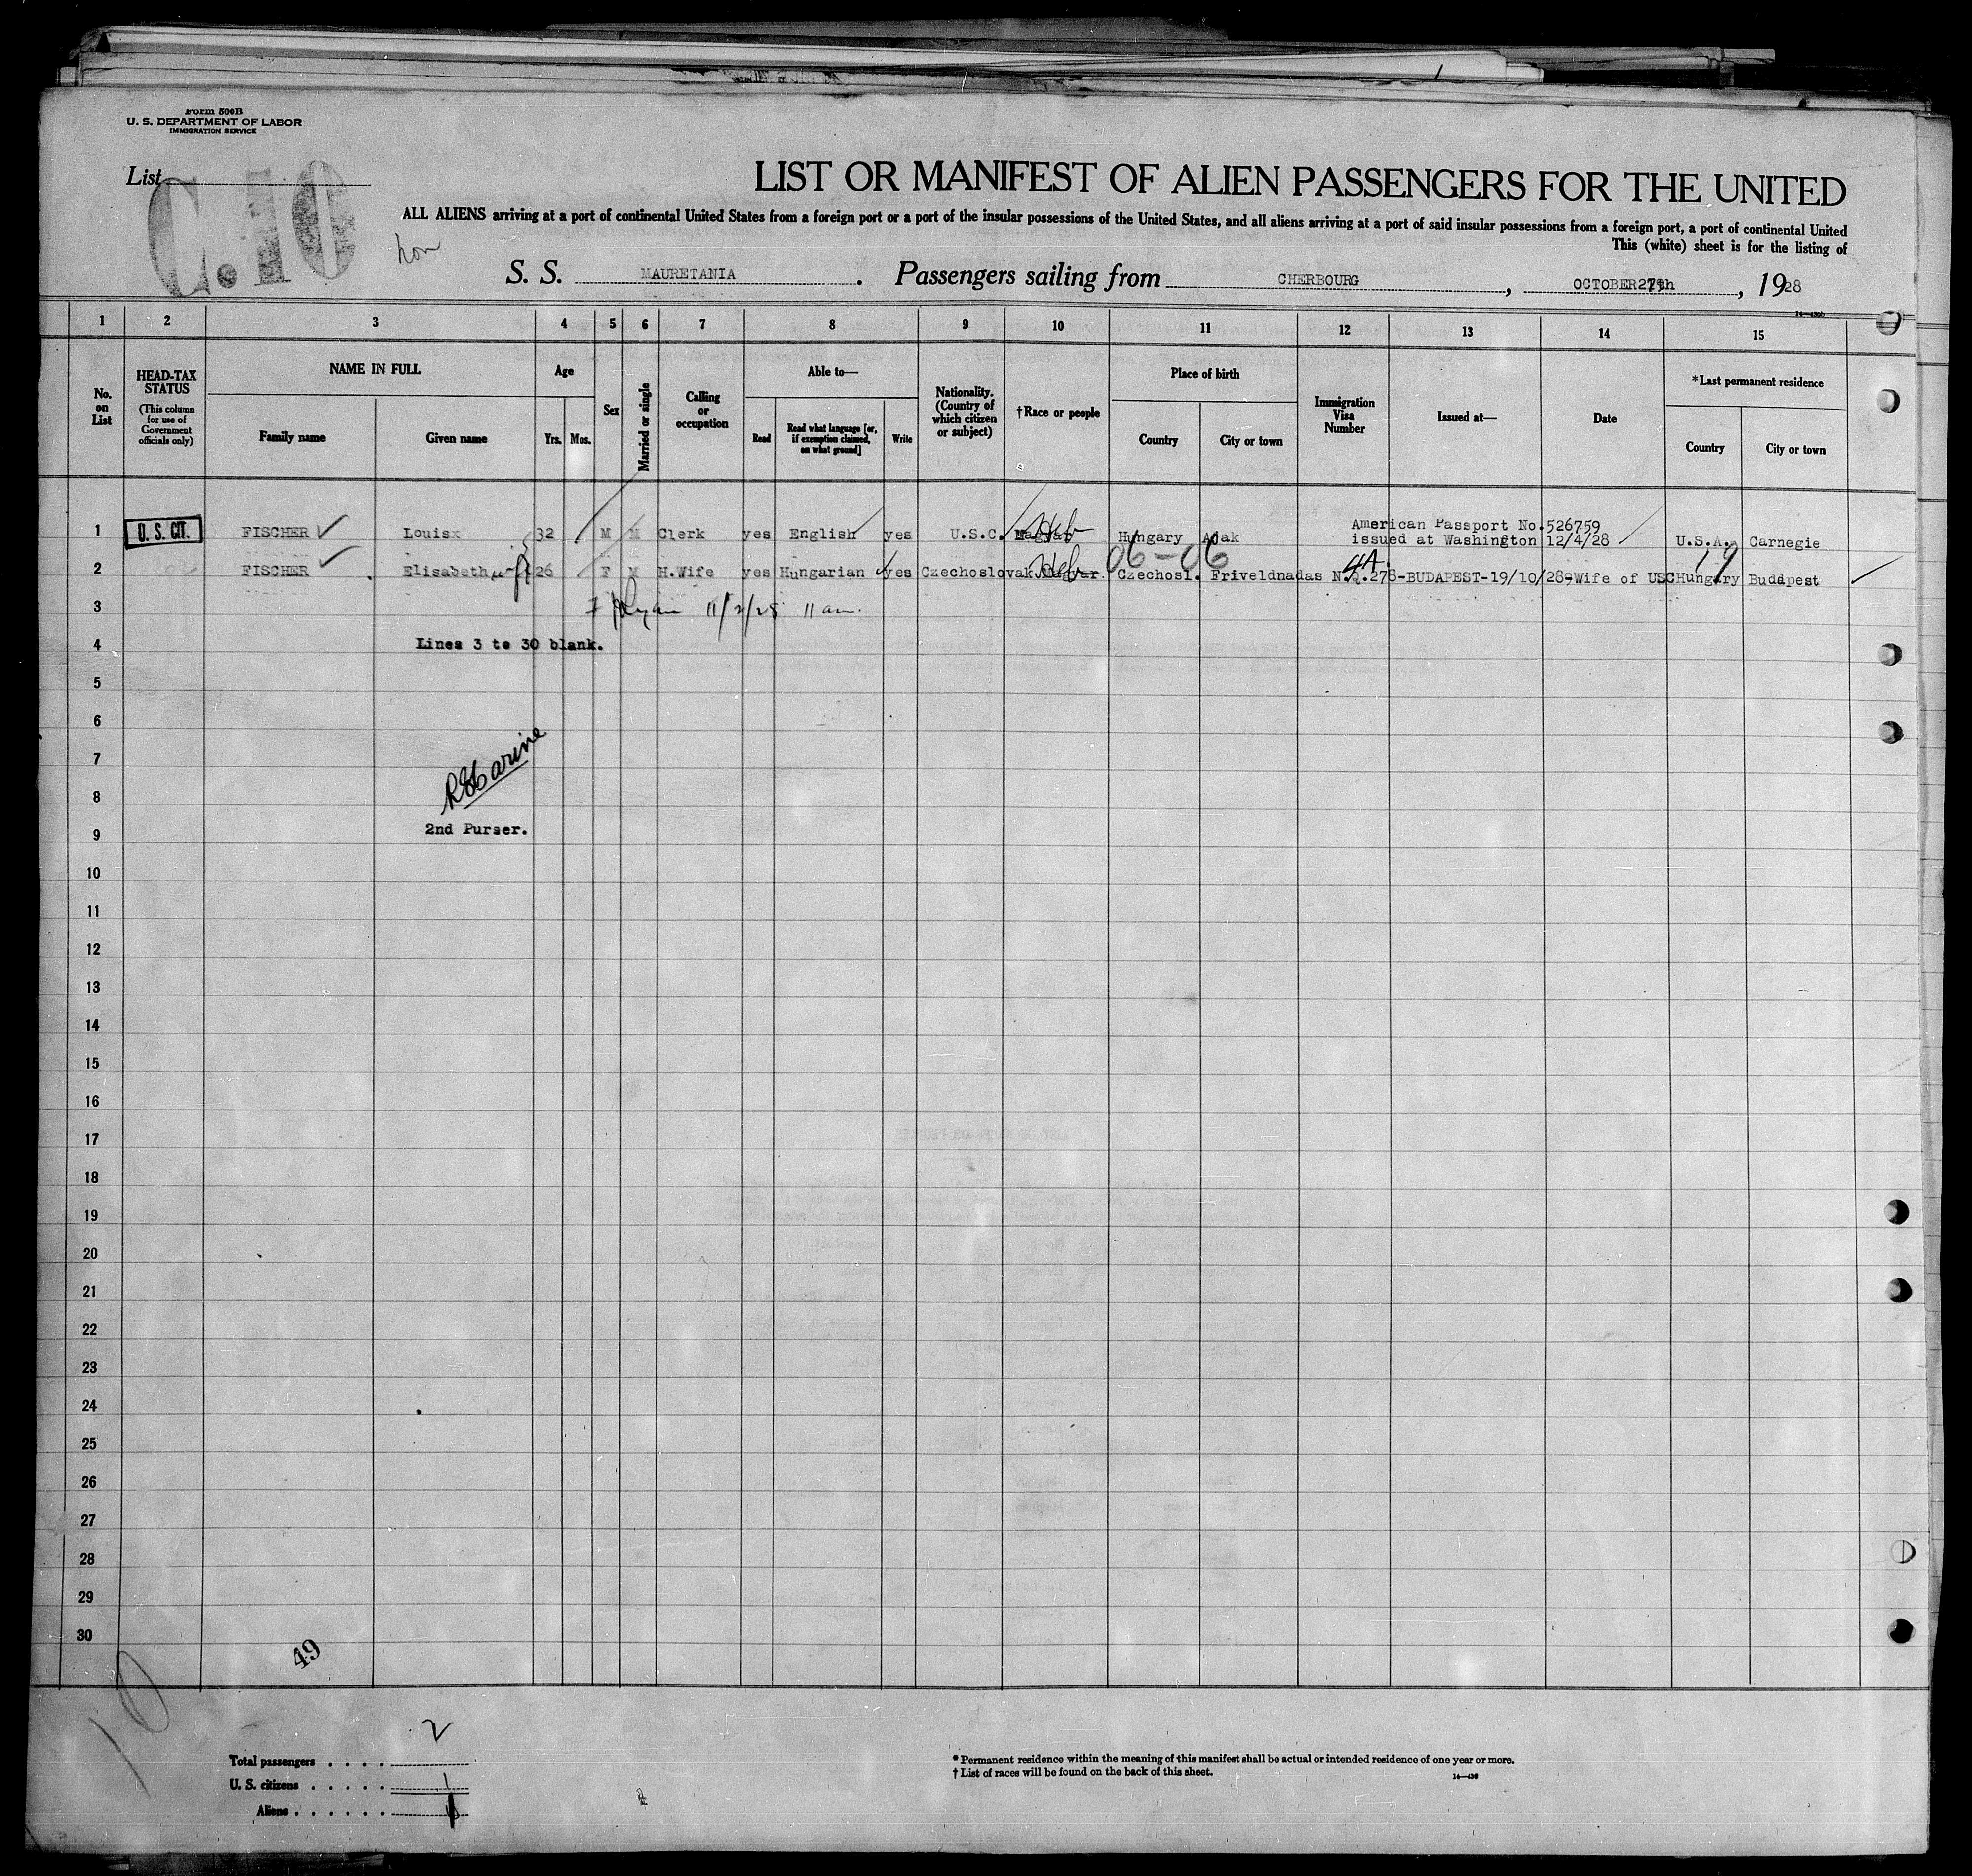 Form 500B
U. S. DEPARTMENT OF LABOR
IMMIGRATION SERVICE
List
C.10
LIST OR MANIFEST OF ALIEN PASSENGERS FOR THE UNITED
ALL ALIENS arriving at a port of continental United States from a foreign port or a port of the insular possessions of the United States, and all aliens arriving at a port of said insular possessions from a foreign port, a port of continental United
This (white) sheet is for the listing of
S. S. MAURETANIA. Passengers sailing from CHERBOURG, OCTOBER 27th, 1928
1 2 3 4 5 6 7 8 9 10 11 12 13 14 15
No. on List
HEAD-TAX STATUS
(This column for use of Government officials only)
NAME IN FULL
Family name
Given name
Age
Yrs.
Mos.
Sex
Married or single
Calling or occupation
Able to—
Read
Read what language [or, if exemption claimed, on what ground]
Write
Nationality. (Country of which citizen or subject)
†Race or people
Place of birth
Country
City or town
Immigration Visa Number
Issued at—
Date
*Last permanent residence
Country
City or town
American Passport No. 526759
1 U. S. CIT. FISCHER Louis 32 M M Clerk yes English yes U.S.C. Heb Hungary Ajak issued at Washington 12/4/28 U.S.A. Carnegie
06-06 4A 19
2 FISCHER Elisabeth wife 26 F M H.Wife yes Hungarian yes Czechoslovak. Heb Czechosl. Friveldnadas N.Q.278-BUDAPEST-19/10/28-Wife of USC Hungary Budapest
3 Ryan 11/2/28 11 am.
4 Lines 3 to 30 blank.
5
6
7
8
9 2nd Purser.
10
11
12
13
14
15
16
17
18
19
20
21
22
23
24
25
26
27
28
29
30
49
10
2
Total passengers . . . .
U. S. citizens . . . . . 1
Aliens . . . . . . 1
* Permanent residence within the meaning of this manifest shall be actual or intended residence of one year or more.
† List of races will be found on the back of this sheet.